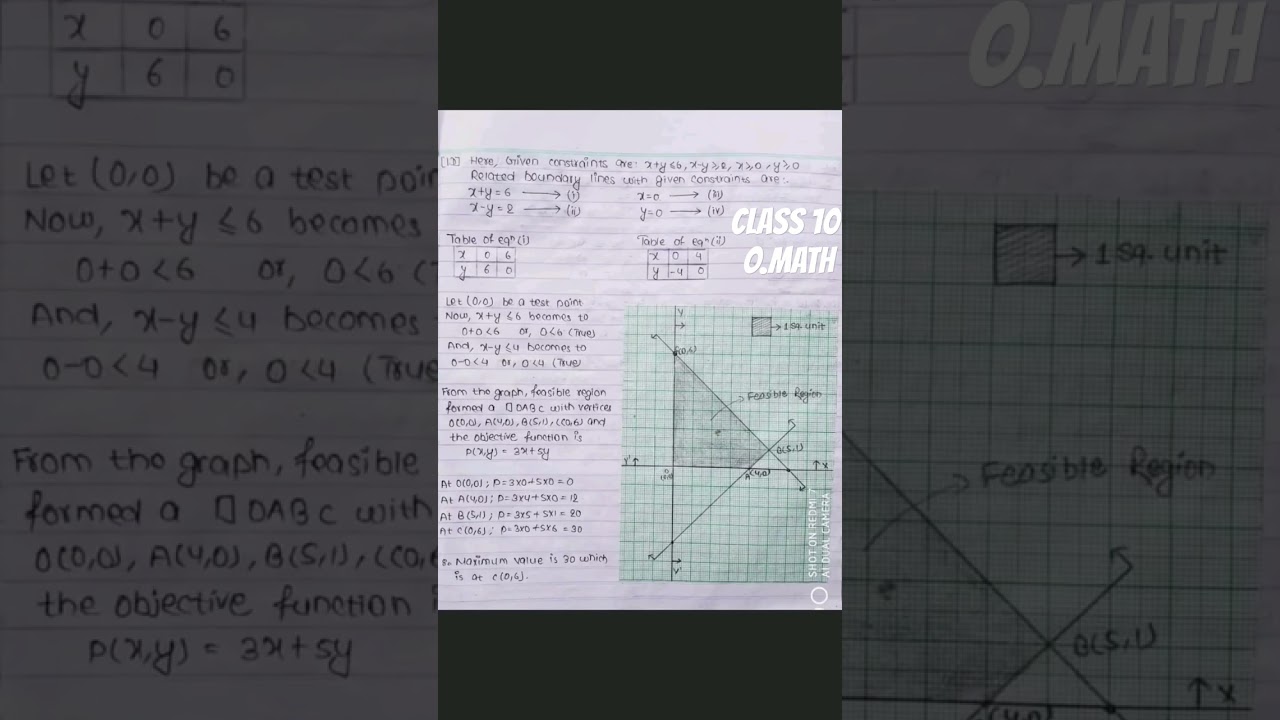 x 0 6
y 6 0
Let (0,0) be a test poin
Now, x+y ≤ 6 becomes
0+0<6 or, 0<6 (
And, x-y ≤ 4 becomes
0-0<4 or, 0<4 (True
From the graph, feasible
formed a □ OABC with
O(0,0), A(4,0), B(5,1), C(0,6
the objective function i
P(x,y) = 3x+5y
Here, Given constraints are: x+y≤6, x-y≥2, x≥0, y≥0
Related boundary lines with given constraints are:-
x+y=6 → (i) x=0 → (iii)
x-y=2 → (ii) y=0 → (iv)
CLASS 10
O.MATH
Table of eqⁿ(i) Table of eqⁿ(ii)
x 0 6 x 0 4
y 6 0 y -4 0
Let (0,0) be a test point
Now, x+y ≤ 6 becomes to
0+0<6 or, 0<6 (True)
And, x-y≤4 becomes to
0-0<4 or, 0<4 (True)
From the graph, feasible region
formed a □ OABC with vertices
O(0,0), A(4,0), B(5,1), C(0,6) and
the objective function is
P(x,y) = 3x+5y
At O(0,0); P=3x0+5x0=0
At A(4,0); P=3x4+5x0=12
At B(5,1); P=3x5+5x1=20
At C(0,6); P=3x0+5x6=30
Maximum value is 30 which
is at C(0,6).
Y
→ 1 sq. unit
C(0,6)
→ Feasible Region
B(5,1)
X'
A(4,0)
X
Y'
SHOT ON REDMI
AI DUAL CAMERA
O.MATH
→ 1 sq. unit
→ Feasible Region
B(5,1)
X
(4,0)